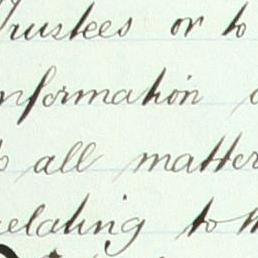 Trustees or to
nformation
to all matter
relating to th